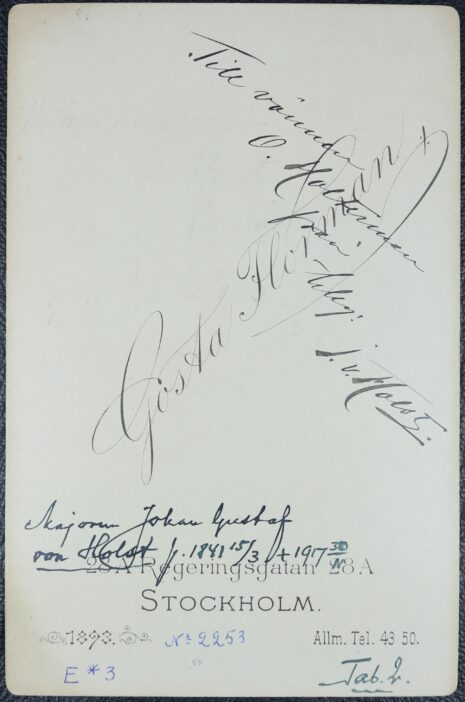 Till vännen
O. Holterman
från
J. v. Holst.
Gösta Florman
Majoren Johan Gustaf
von Holst f. 1841 15/3 + 1917
28 A Regeringsgatan 28 A
STOCKHOLM.
1893. No 2253 Allm. Tel. 43 50.
E * 3 Tab. 2.